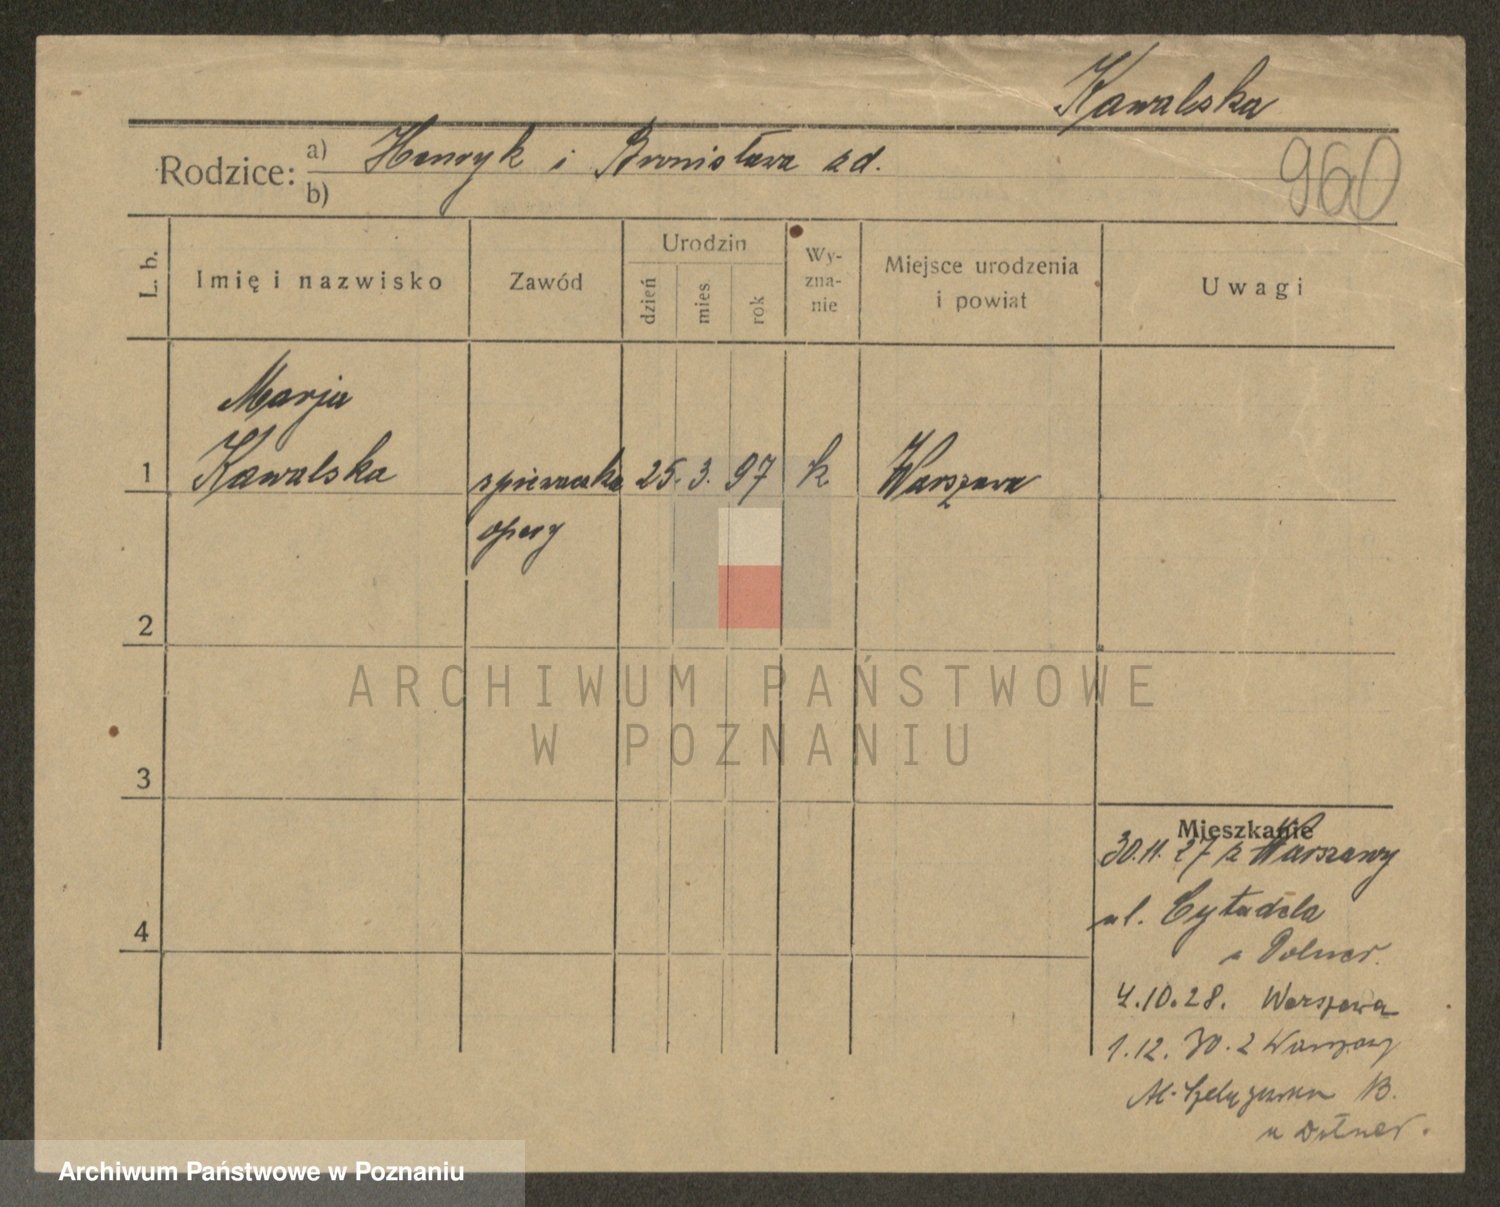 Kawalska
960
Rodzice: a) Henryk i Bronisława zd.
b)
L. b.
Imię i nazwisko
Zawód
Urodzin
dzień
mies
rok
Wy-
zna-
nie
Miejsce urodzenia
i powiat
Uwagi
Marja
1 Kawalska śpiewaczka 25. 3. 97 k Warszawa
opery
2
3
4
Mieszkanie
30.11.27 z Warszawy
ul. Cytadela
4.10.28. Warszawa
1.12.30. z Warszawy
ARCHIWUM PAŃSTWOWE
W POZNANIU
Archiwum Państwowe w Poznaniu